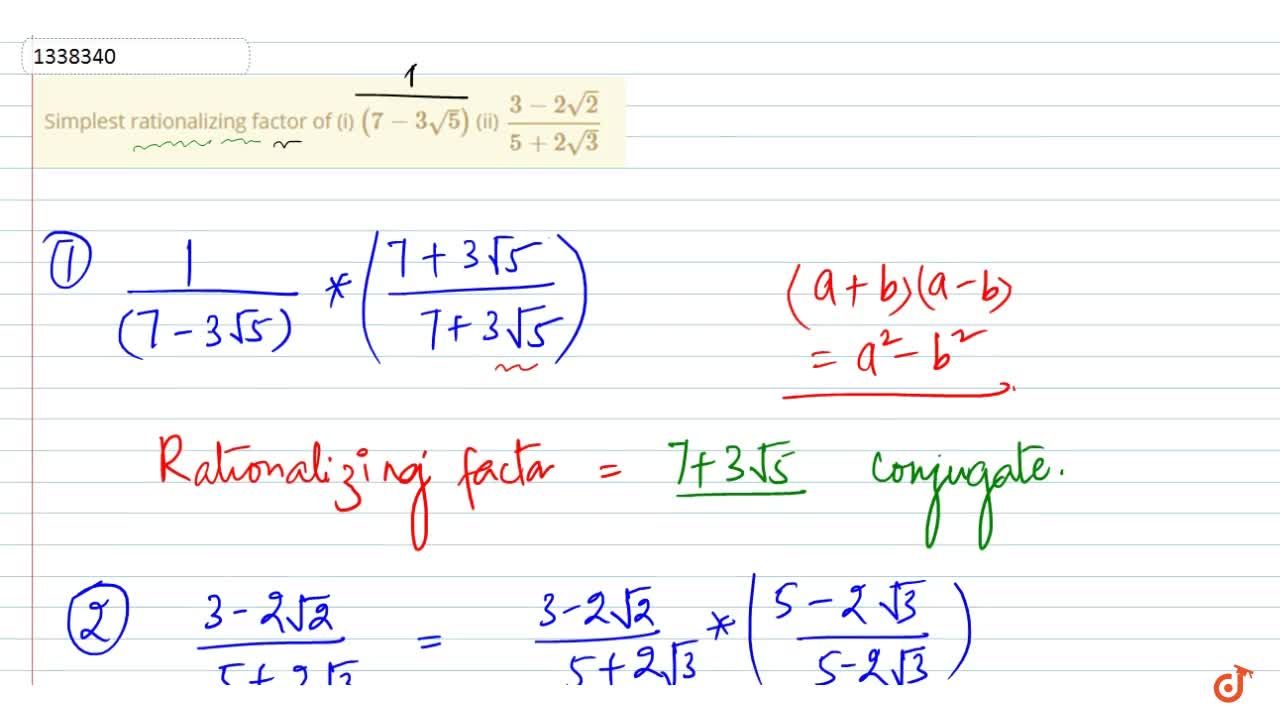 1338340
Simplest rationalizing factor of (i) 1/(7 − 3√5) (ii) (3 − 2√2)/(5 + 2√3)
① 1/(7 − 3√5) * ((7 + 3√5)/(7 + 3√5))
(a + b)(a − b)
= a² − b²
Rationalizing factor = 7 + 3√5 conjugate.
② (3 − 2√2)/(5 + 2√3) = (3 − 2√2)/(5 + 2√3) * ((5 − 2√3)/(5 − 2√3))